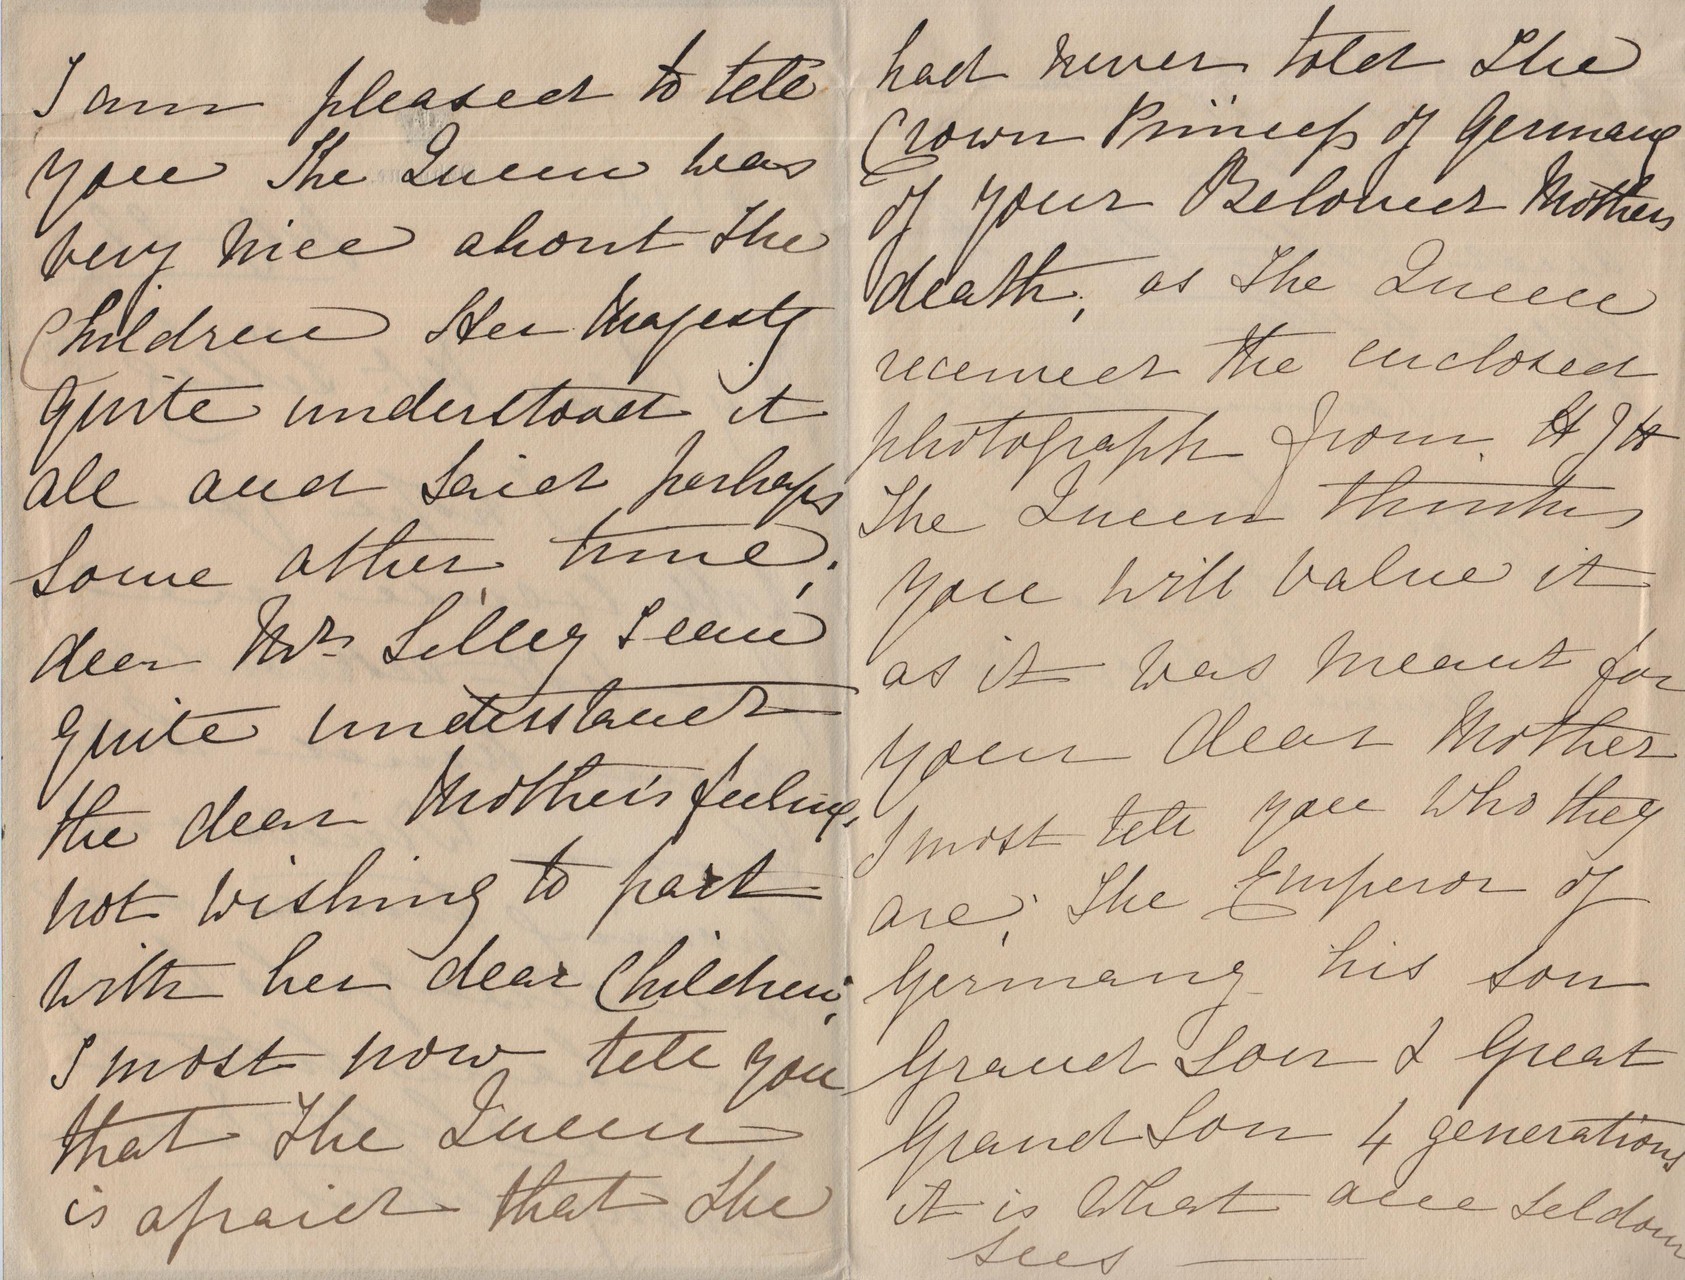 I am pleased to tell
you The Queen was
very nice about the
Children Her Majesty
quite understood it
all and said perhaps
some other time;
dear Mrs Lilley I can
quite understand
the dear Mother's feeling,
not wishing to part
with her dear Children;
I most now tell you
that The Queen
is afraid that the
had never told the
Crown Princess of Germany
of your Beloved Mothers
death; as The Queen
received the enclosed
photograph from H I H
The Queen thinks
you will value it
as it was meant for
your dear Mother
I most tell you who they
are; The Emperor of
Germany his son
Grand Son & Great
Grand Son 4 generations
it is what one seldom
sees